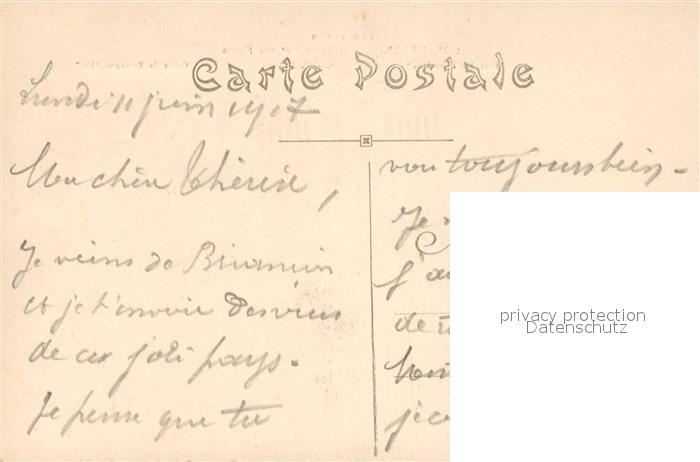 Carte Postale
Lundi 11 juin 1917
Mon chère Thérèse,
Je viens de
et je t'envoie des vues
de ces joli pays.
Je pense que tu
vous toujours bien.
Je
J'ai
de
privacy protection
Datenschutz